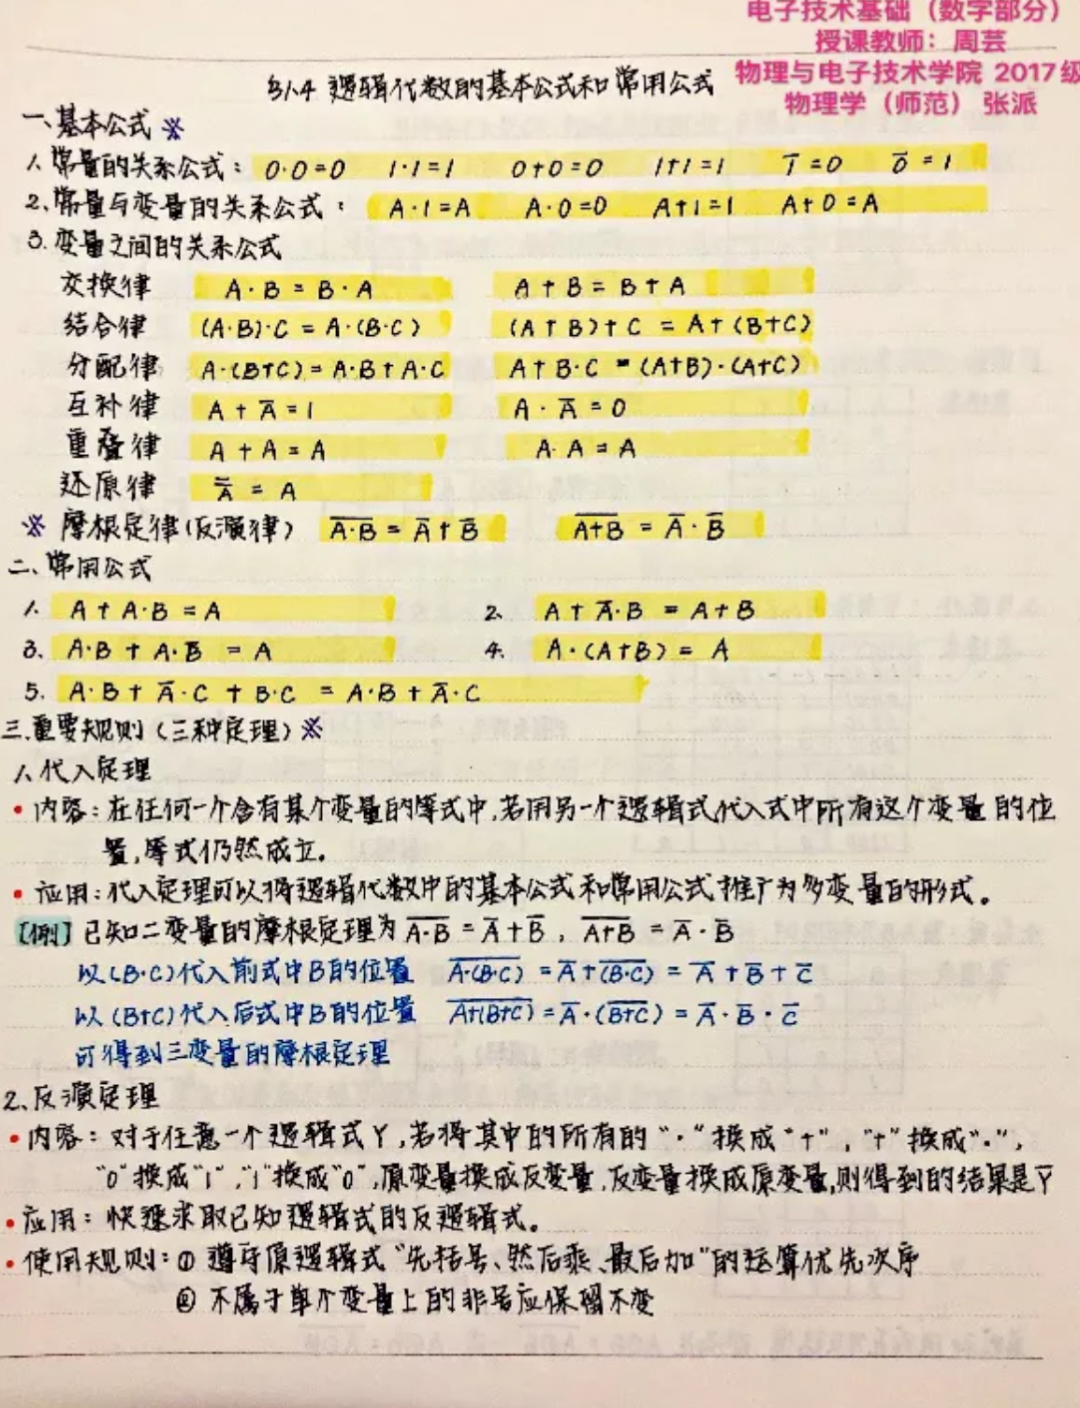 电子技术基础（数字部分）
授课教师：周芸
物理与电子技术学院 2017级
物理学（师范） 张派
§1.4 逻辑代数的基本公式和常用公式
一、基本公式 ※
1. 常量的关系公式： 0·0=0 1·1=1 0+0=0 1+1=1 1̅=0 0̅=1
2、常量与变量的关系公式： A·1=A A·0=0 A+1=1 A+0=A
3. 变量之间的关系公式
交换律 A·B=B·A A+B=B+A
结合律 (A·B)·C=A·(B·C) (A+B)+C=A+(B+C)
分配律 A·(B+C)=A·B+A·C A+B·C=(A+B)·(A+C)
互补律 A+A̅=1 A·A̅=0
重叠律 A+A=A A·A=A
还原律 A̿=A
※ 摩根定律(反演律) A̅·̅B̅=A̅+B̅ A̅+̅B̅=A̅·B̅
二、常用公式
1. A+A·B=A 2. A+A̅·B=A+B
3、A·B+A·B̅=A 4. A·(A+B)=A
5. A·B+A̅·C+B·C=A·B+A̅·C
三.重要规则(三种定理)※
1. 代入定理
• 内容：在任何一个含有某个变量的等式中,若用另一个逻辑式代入式中所有这个变量的位
置,等式仍然成立.
• 应用：代入定理可以将逻辑代数中的基本公式和常用公式推广为多变量的形式。
[例] 已知二变量的摩根定理为 A̅·̅B̅=A̅+B̅, A̅+̅B̅=A̅·B̅
以(B·C)代入前式中B的位置 A̅·̅(̅B̅·̅C̅)̅=A̅+(̅B̅·̅C̅)̅=A̅+B̅+C̅
以(B+C)代入后式中B的位置 A̅+̅(̅B̅+̅C̅)̅=A̅·(̅B̅+̅C̅)̅=A̅·B̅·C̅
可得到三变量的摩根定理
2、反演定理
• 内容：对于任意一个逻辑式Y,若将其中的所有的"·"换成"+","+"换成"·",
"0"换成"1","1"换成"0",原变量换成反变量,反变量换成原变量,则得到的结果是Y̅
• 应用：快速求取已知逻辑式的反逻辑式。
• 使用规则：① 遵守原逻辑式"先括号、然后乘、最后加"的运算优先次序
② 不属于单个变量上的非号应保留不变